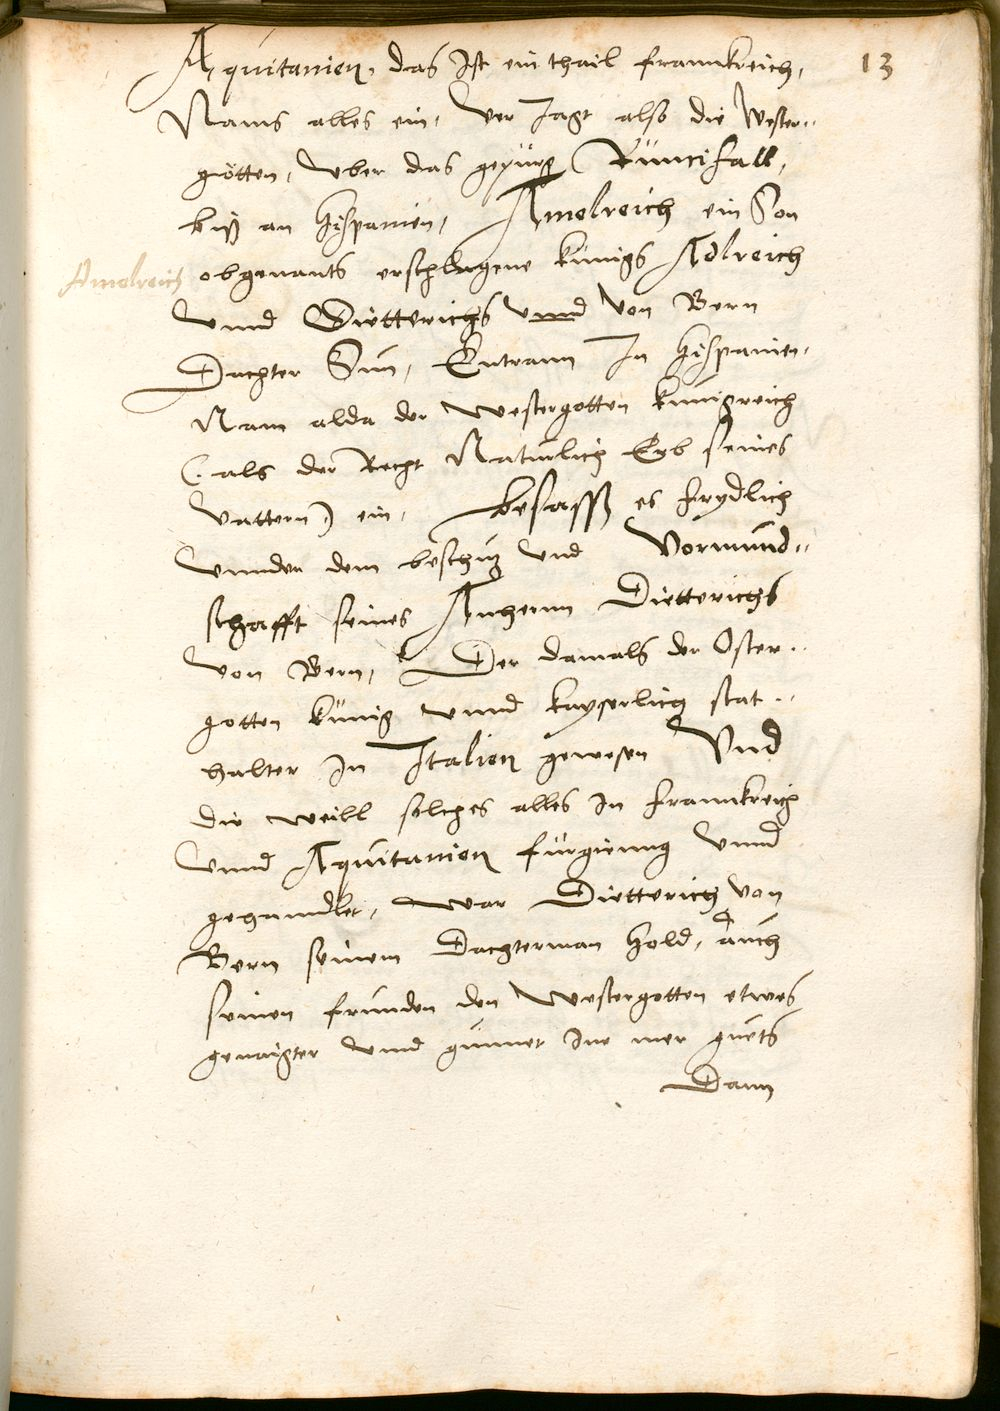 13
Aquitanien, das Ist ein thail Frannkreich,
Nams alles ein, Ver Jagt also die Wester..
götten, Vber das gepürg Runcifall,
biß an Hispanien, Amelreich ein Son
Amelreich
obgenants erschlagene künigs Adlreich
vnnd Dietterichs vnnd von Bern
Dachter Sun, Entrann In Hispanien,
Nam alda der westergotten künigreich
(. als der Recht Natürlich Erb seines
vattern) ein, besasß es frydlich
vnnder dem beschuz vnd Vormund..
schafft seines Anherrn Dietterichs
von Bern, Der damals der Oster..
gotten künig vnnd kayserlich stat..
halter In Italien gewesen Vnd
die weill solches alles in Frannkreich
vnnd Aquitanien fürgienng vnnd
gehanndlet, war Dietterich von
Bern seinem Dachterman hold, auch
seinen freunden den Westergotten etwas
genaigter vnnd gunnet Ine mer guets
Dann